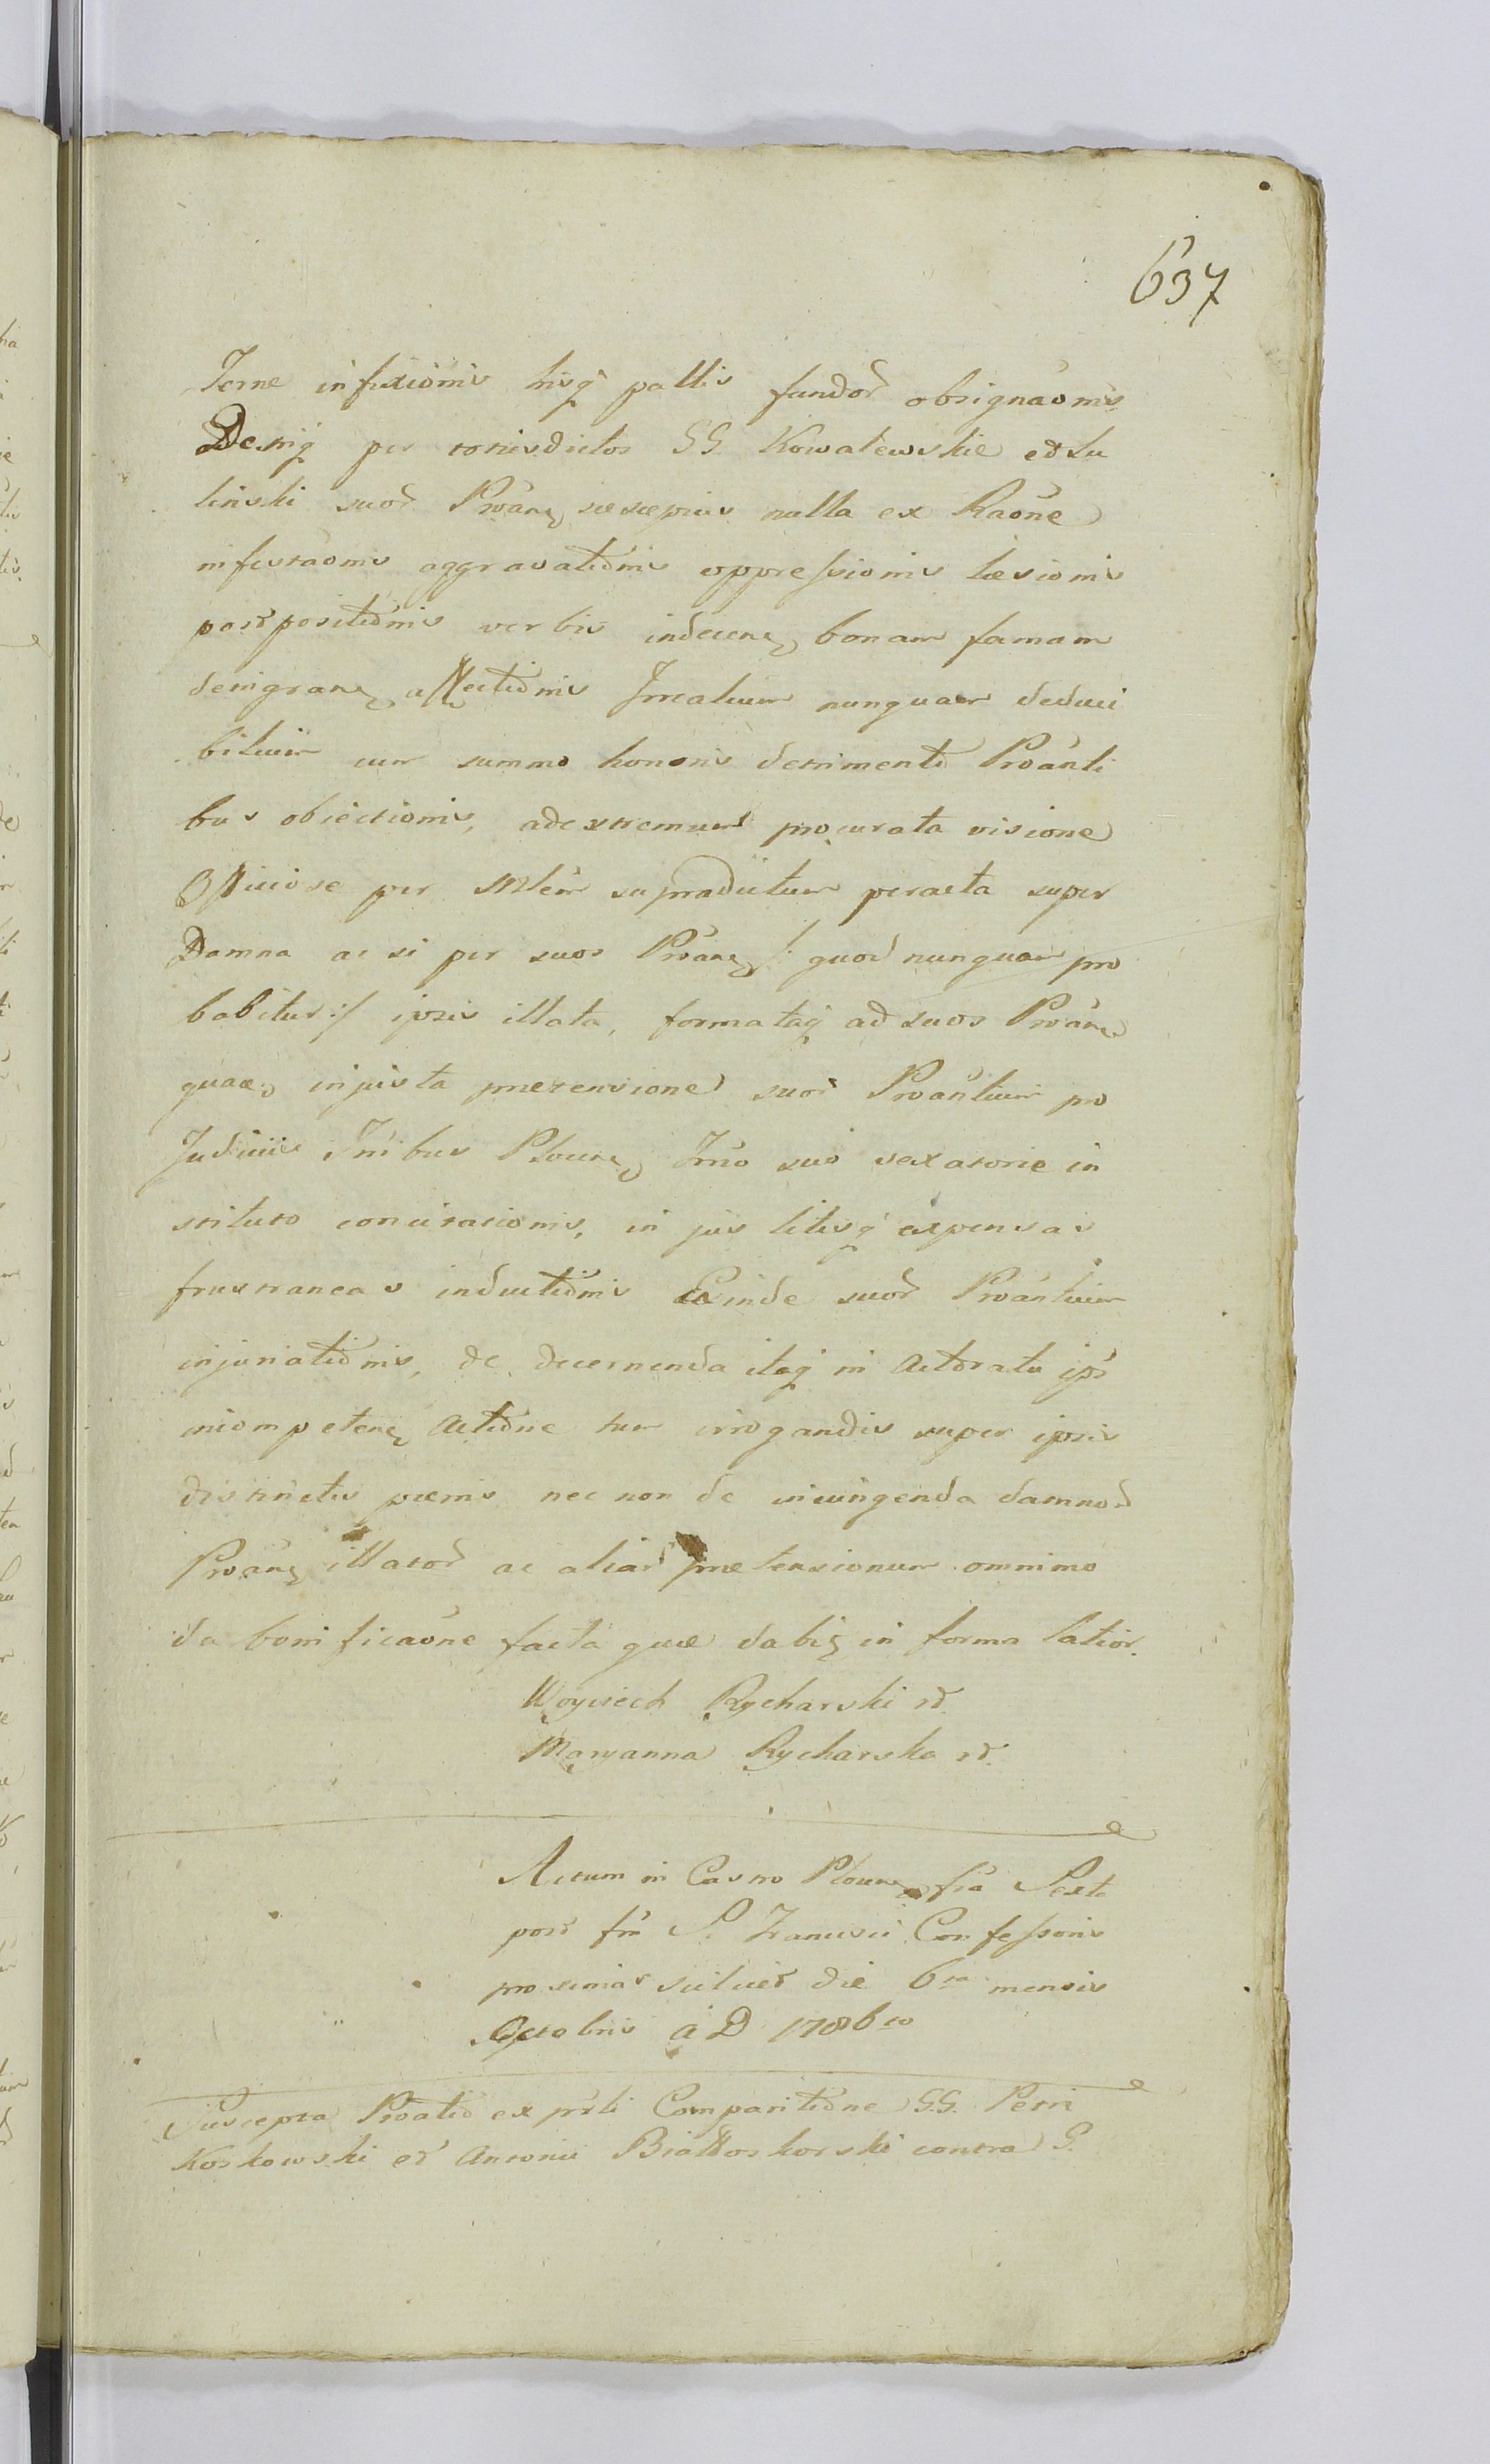 637
Terne infixionis hisq pallis fundor obsignaonis
Deniq per totiesdictos GG Kowalewskie et Lu
linski suos Proanę saesaepius nulla ex Raone
infestraonis aggravationis oppressionis laesionis
postpositionis verbis indecenę bonam famam
denigranę affectionis Irrealium nunquam deduci
bilium cum summo honoris detrimento Proanti
bus obiectionis, ad extremum procurata visione
Officiose per Mlem supradictum peracta super
Damna ac si per suos Proanę /: quod nunquam pro
babitur :/ ipsis illata, formataq ad suos Proanę
quae injusta praetensione suor Proantium pro
Judiciis Tribus Plocenę Tmo suo vexatorie in
stituto concitationis, in jus litisq expensas
frustraneas inductionis Exinde suor Proantium
injuriationis, de decernenda itaq in Actoratu ips
incompetenę Actione tum irrogandis super ipsis
distinctis paenis nec non de iniungenda damnor
Proanę illator ac aliar praetensionum omnimo
da bonificaone facta quae dabię in forma latior.
Woyciech Rycharski
Maryanna Rycharska
Actum in Castro Plocenę fria Sexta
post fm S. Francisci Confessoris
proxima scilicet die 6ta mensis
Octobris A D 1786to
Suscepta Proatio ex prsti Comparitione GG. Petri
Koskowski et Antonii Białłoskorski contra G.